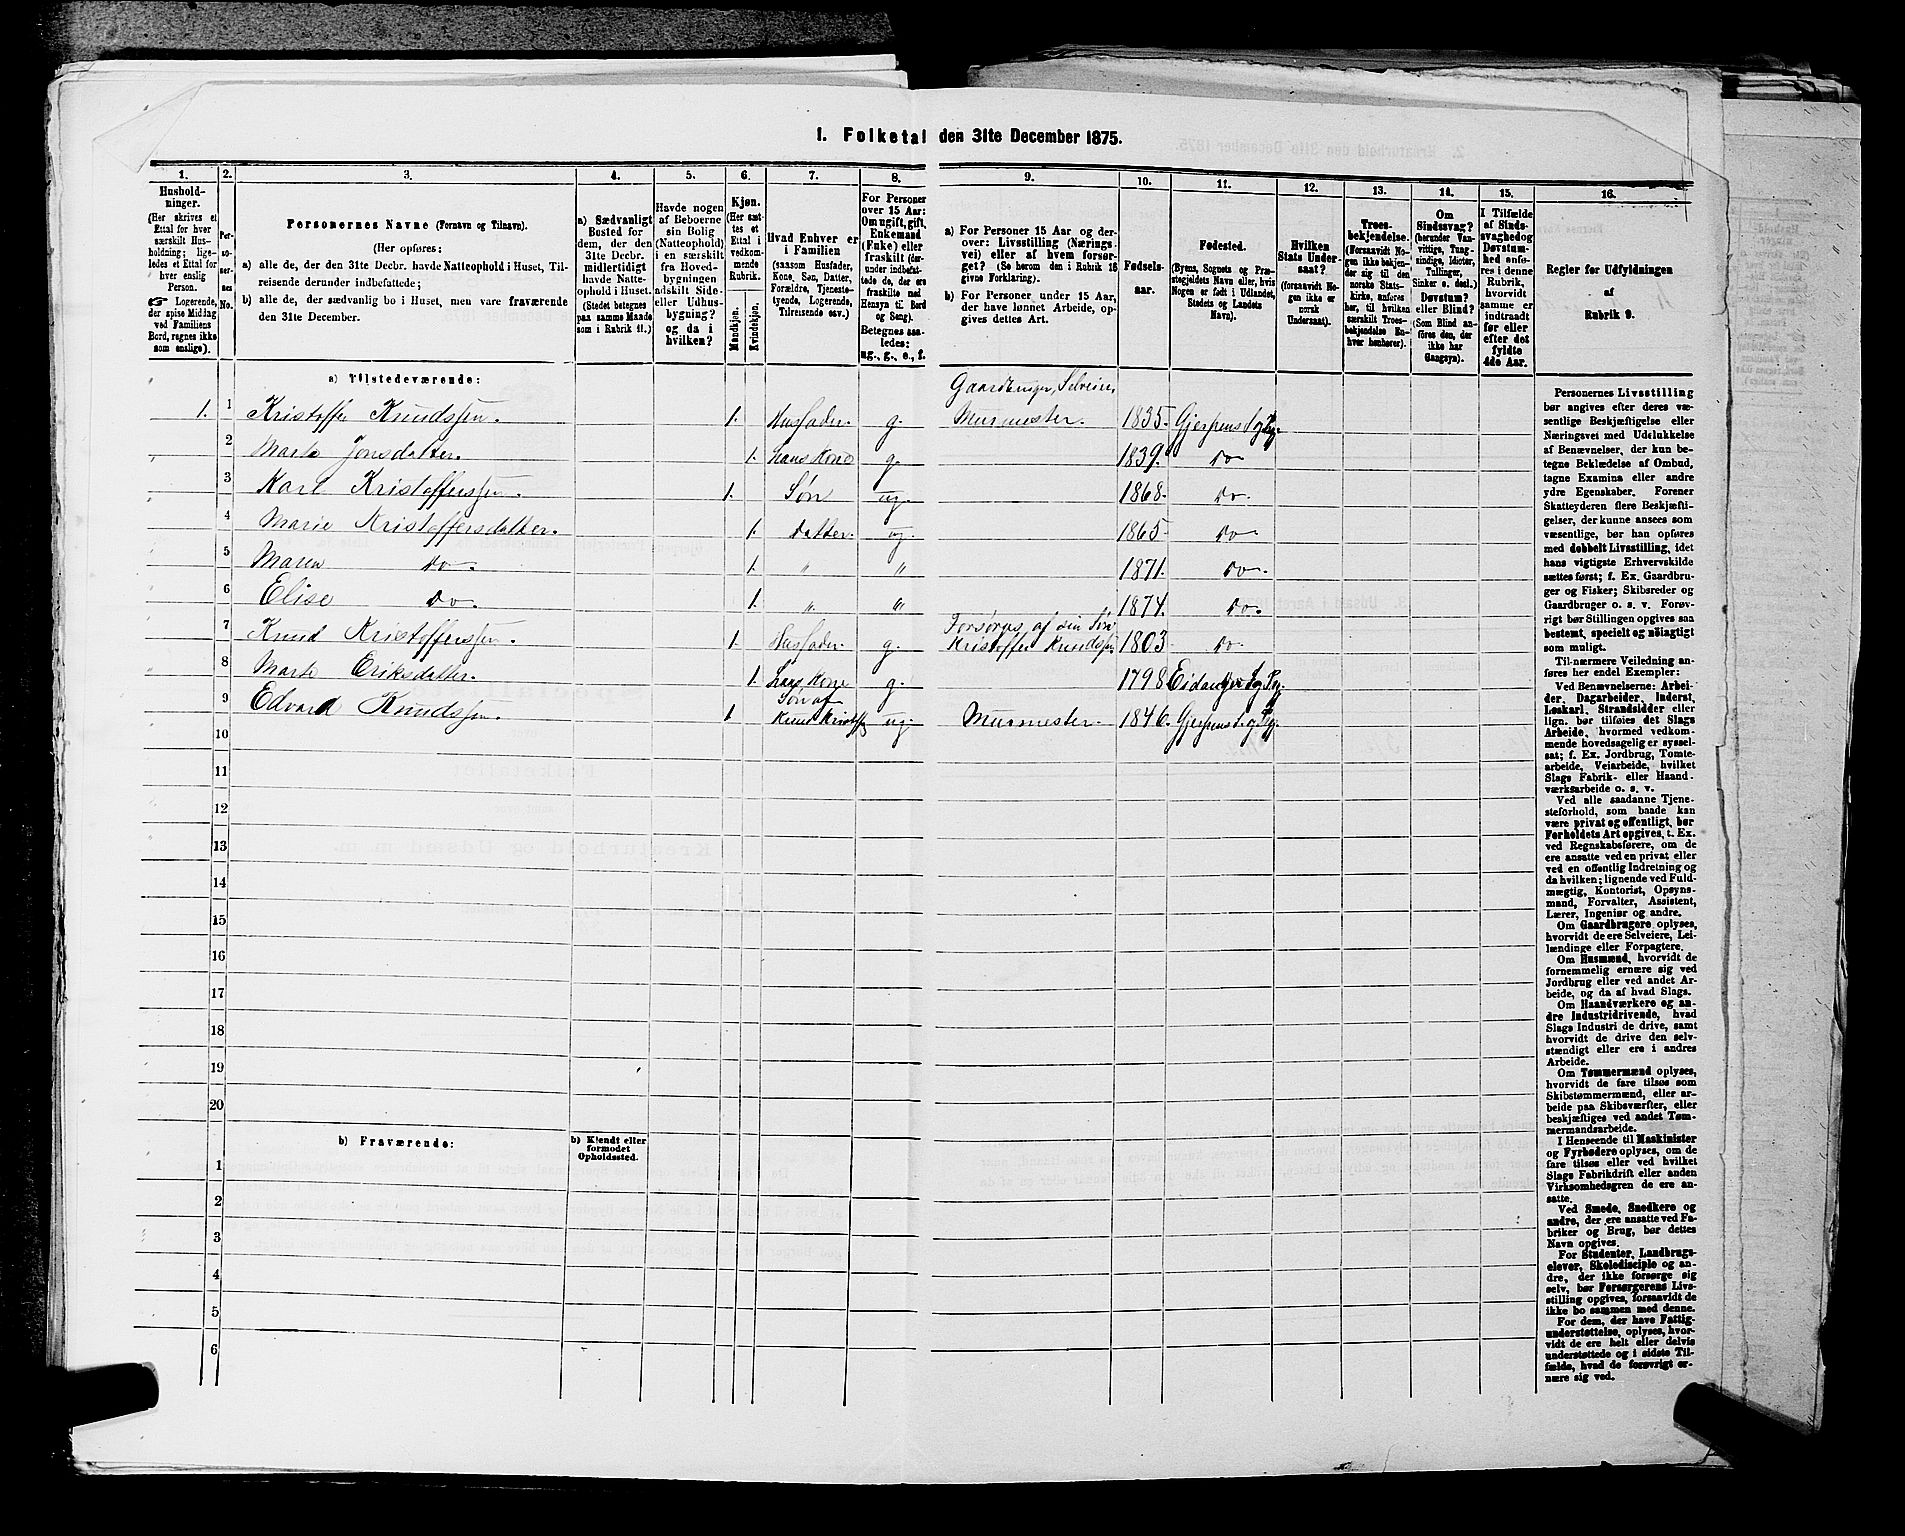 1. Folketal den 31te December 1875.
1.
2.
3.
4.
5.
6.
7.
8.
9.
10.
11.
12.
13.
14.
15.
16.
Hushold-
ninger.
(Her skrives et
Ettal for hver
særskilt Hus-
holdning; lige-
ledes et Ettal for
hver enslig
Person.
☞ Logerende,
der spise Middag
ved Familiens
Bord, regnes ikke
som enslige).
Per-
so-
ner-
nes
No.
Personernes Navne (Fornavn og Tilnavn).
(Her opføres:
a) alle de, der den 31te Decbr. havde Natteophold i Huset, Til-
reisende derunder indbefattede;
b) alle de, der sædvanlig bo i Huset, men vare fraværende
den 31te December.
a) Sædvanligt
Bosted for
dem, der den
31te Decbr.
midlertidigt
havde Natte-
ophold i Huset.
(Stedet betegnes
paa samme Maade
som i Rubrik 11.)
Havde nogen
af Beboerne
sin Bolig
(Natteophold)
i en særskilt
fra Hoved-
bygningen
adskilt Side-
eller Udhus-
bygning?
og da i
hvilken?
Kjøn.
(Her sæt-
tes et
Ettal i
vedkom-
mende
Rubrik.
Mandkjøn.
Kvindekjøn.
Hvad Enhver er
i Familien
(saasom Husfader,
Kone, Søn, Datter,
Forældre, Tjeneste-
tyende, Logerende,
Tilreisende osv.)
For Personer
over 15 Aar:
Om ugift, gift,
Enkemand
(Enke) eller
fraskilt (der-
under indbefat-
tede de, der ere
fraskilte med
Hensyn til Bord
og Seng).
Betegnes saa-
ledes:
ug., g., e., f.
a) For Personer 15 Aar og der-
over: Livsstilling (Nærings-
vei) eller af hvem forsør-
get? (Se herom den i Rubrik 16
givne Forklaring).
b) For Personer under 15 Aar,
der have lønnet Arbeide, op-
gives dettes Art.
Fødsels-
aar.
Fødested.
(Byens, Sognets og Præ-
stegjeldets Navn eller, hvis
Nogen er født i Udlandet,
Stedets og Landets
Navn).
Hvilken
Stats Under-
saat?
(forsaavidt No-
gen ikke er
norsk
Undersaat).
Troes-
bekjendelse.
(Forsaavidt No-
gen ikke bekjen-
der sig til den
norske Stats-
kirke, anføres
her, til hvilken
særskilt Troes-
bekjendelse En-
hver henhører).
Om
Sindssvag?
(herunder Van-
vittige, Tung-
sindige, Idioter,
Tullinger,
Sinker o. desl.)
Døvstum?
eller Blind?
(Som Blind an-
føres den, der
ikke har
Gangsyn).
I Tilfælde
af Sinds-
svaghed og
Døvstum-
hed anfø-
res i denne
Rubrik,
hvorvidt
samme er
indtraadt
før eller
efter det
fyldte
4de Aar.
Regler for Udfyldningen
af
Rubrik 9.
a) Tilstedeværende:
Gaardbruger, Selveier,
1. 1 Kristoffer Knudssen. 1. Husfader. g. Murmester. 1835. Gjerpens Sog Pg.
2 Marte Jonsdatter. 1. hans Kone g. 1839. Do
3 Karl Kristofferssen. 1. Søn ug. 1868. Do.
4 Marie Kristoffersdatter. 1. Datter. ug. 1865. Do
5 Maren Do. 1. " " 1871. Do.
6 Elise Do. 1. " " 1874. Do.
Forsørges af sin Søn
7 Knud Kristofferssen. 1. Husfader. g. Kristoffer Knudssen 1803. Do
8 Marte Eriksdatter. 1. hans Kone g. 1798 Eidanger Sg Pg.
Søn af
9 Edvard Knudssen. 1 Knud Kristoffs ug. Murmester. 1846. Gjerpens S. og Pg.
10
11
12
13
14
15
16
17
18
19
20
b) Fraværende:
b) Kjendt eller
formodet
Opholdssted.
1
2
3
4
5
6
Personernes Livsstilling
bør angives efter deres væ-
sentlige Beskjæftigelse eller
Næringsvei med Udelukkelse
af Benævnelser, der kun be-
tegne Beklædelse af Ombud,
tagne Examina eller andre
ydre Egenskaber. Forener
Skatteyderen flere Beskjæfti-
gelser, der kunne ansees som
væsentlige, bør han opføres
med dobbelt Livsstilling, idet
hans vigtigste Erhvervskilde
sættes først; f. Ex. Gaardbru-
ger og Fisker; Skibsreder og
Gaardbruger o. s. v. Forøv-
rigt bør Stillingen opgives saa
bestemt, specielt og nøiagtigt
som muligt.
Til nærmere Veiledning an-
føres her endel Exempler:
Ved Benævnelserne: Arbei-
der, Dagarbeider, Inderst,
Løskarl, Strandsidder eller
lign. bør tilføies det Slags
Arbeide, hvormed vedkom-
mende hovedsagelig er syssel-
sat; f. Ex. Jordbrug, Tomte-
arbeide, Veiarbeide, hvilket
Slags Fabrik- eller Haand-
værksarbeide o. s. v.
Ved alle saadanne Tjene-
steforhold, som baade kan
være privat og offentligt, bør
Forholdets Art opgives, t. Ex.
ved Regnskabsførere, om de
ere ansatte ved en privat eller
ved en offentlig Indretning og
da hvilken; lignende ved Fuld-
mægtig, Kontorist, Opsyns-
mand, Forvalter, Assistent,
Lærer, Ingeniør og andre.
Om Gaardbrugere oplyses,
hvorvidt de ere Selveiere, Lei-
lændinge eller Forpagtere.
Om Husmænd, hvorvidt de
fornemmelig ernære sig ved
Jordbrug eller ved andet Ar-
beide, og da af hvad Slags.
Om Haandværkere og an-
dre Industridrivende, hvad
Slags Industri de drive, samt
hvorvidt de drive den selv-
stændigt eller ere i andres
Arbeide.
Om Tømmermænd oplyses,
hvorvidt de fare tilsøs som
Skibstømmermænd, eller ar-
beide paa Skibsværfter, eller
beskjæftiges ved andet Tøm-
mermandsarbeide.
I Henseende til Maskinister
og Fyrbødere oplyses, om de
fare tilsøs eller ved hvilket
Slags Fabrikdrift eller anden
Virksomhedsgren de ere an-
satte.
Ved Smede, Snedkere og
andre, der ere ansatte ved Fa-
briker og Brug, bør dettes
Navn opgives.
For Studenter, Landbrugs-
elever, Skoledisciple og an-
dre, der ikke forsørge sig
selv, bør Forsørgerens Livs-
stilling opgives, forsaavidt de
ikke bo sammen med denne.
For dem, der have Fattig-
understøttelse, oplyses, hvor-
vidt de ere helt eller delvis
understøttede og i sidste Til-
fælde, hvad de forøvrigt er-
nære sig ved.